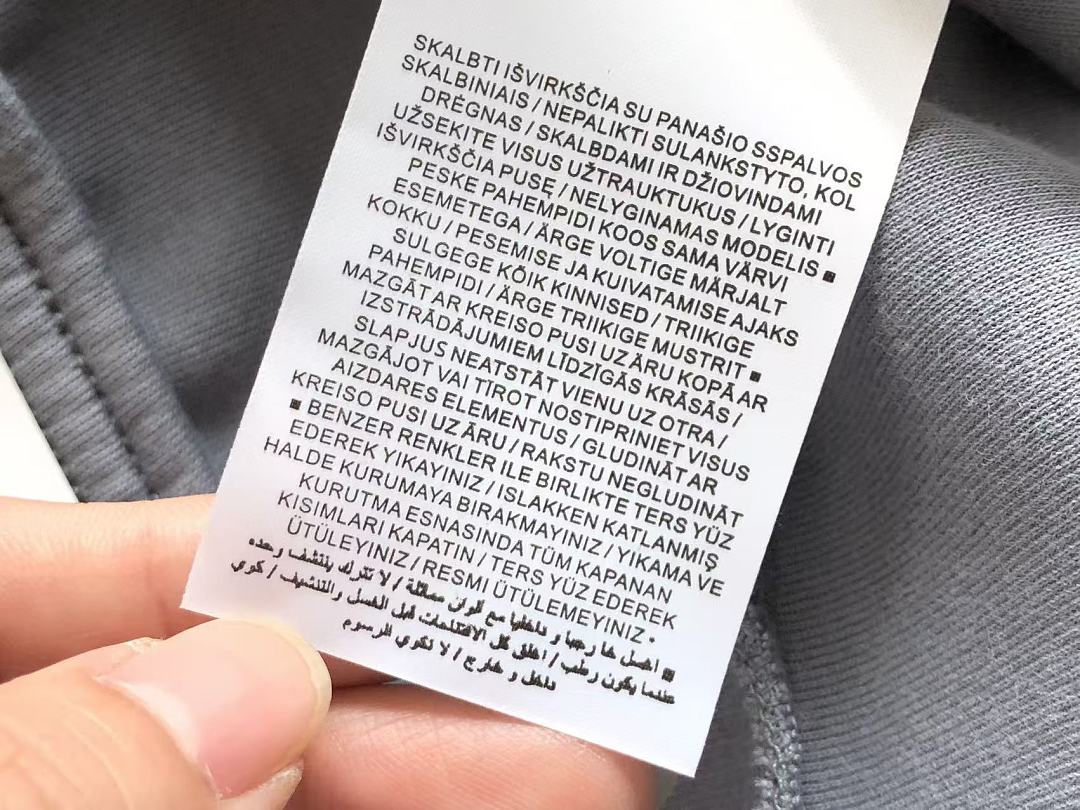 SKALBTI IŠVIRKŠČIA SU PANAŠIO SSPALVOS
SKALBINIAIS / NEPALIKTI SULANKSTYTO, KOL
DRĖGNAS / SKALBDAMI IR DŽIOVINDAMI
UŽSEKITE VISUS UŽTRAUKTUKUS / LYGINTI
IŠVIRKŠČIA PUSĘ / NELYGINAMAS MODELIS ■
PESKE PAHEMPIDI KOOS SAMA VÄRVI
ESEMETEGA / ÄRGE VOLTIGE MÄRJALT
KOKKU / PESEMISE JA KUIVATAMISE AJAKS
SULGEGE KÕIK KINNISED / TRIIKIGE
PAHEMPIDI / ÄRGE TRIIKIGE MUSTRIT ■
MAZGĀT AR KREISO PUSI UZ ĀRU KOPĀ AR
IZSTRĀDĀJUMIEM LĪDZĪGĀS KRĀSĀS /
SLAPJUS NEATSTĀT VIENU UZ OTRA /
MAZGĀJOT VAI TĪROT NOSTIPRINIET VISUS
AIZDARES ELEMENTUS / GLUDINĀT AR
KREISO PUSI UZ ĀRU / RAKSTU NEGLUDINĀT
■ BENZER RENKLER ILE BIRLIKTE TERS YÜZ
EDEREK YIKAYINIZ / ISLAKKEN KATLANMIŞ
HALDE KURUMAYA BIRAKMAYINIZ / YIKAMA VE
KURUTMA ESNASINDA TÜM KAPANAN
KISIMLARI KAPATIN / TERS YÜZ EDEREK
ÜTÜLEYINIZ / RESMI ÜTÜLEMEYINIZ •
■ اغسل خارجيا و داخليا مع ألوان مماثلة / لا تترك ينشف وحده
عندما يكون رطب / اغلق كل الافتتاحات قبل الغسل والتنشيف / كوي
داخل و خارج / لا تكوي الرسوم